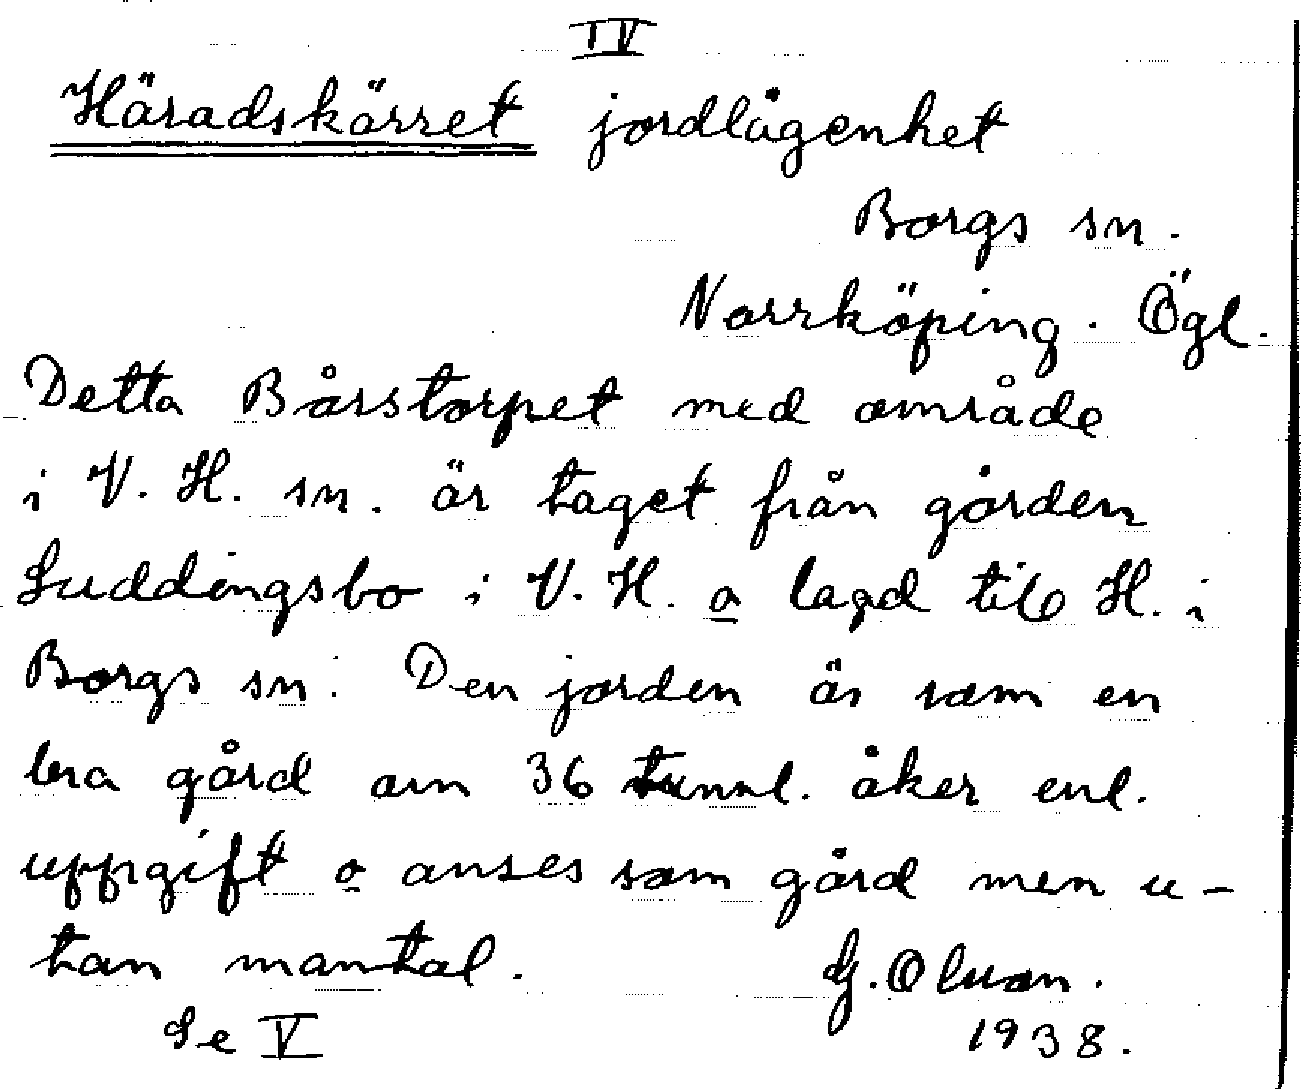 IV
Häradskärret jordlägenhet
Borgs sn.
Norrköping. Ögl.
Detta Bårstorpet med område
i V. H. sn. är taget från gården
Luddingsbo i V. H. o lagd till H. i
Borgs sn. Den jorden är som en
bra gård om 36 tunnl. åker enl.
uppgift o anses som gård men u-
tan mantal. G. Olsson.
Se V 1938.